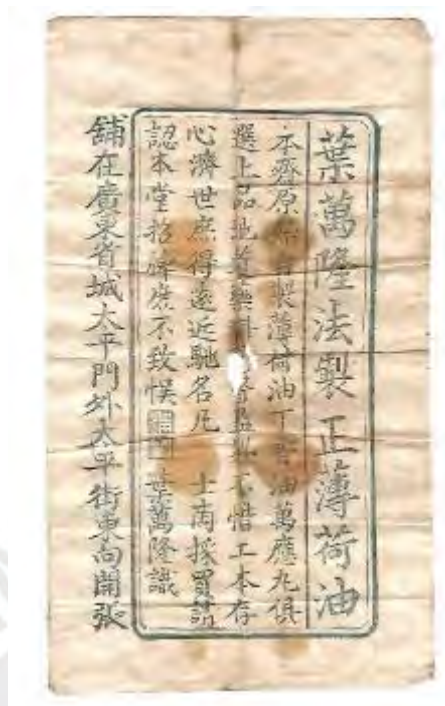 葉萬隆法製正薄荷油
本齋原 製薄荷油丁 油萬應丸俱
選上品地道藥 不惜工本存
心濟世庶得遠近馳名凡 士商採買請
認本堂招牌庶不致悞 葉萬隆識
舖在廣東省城太平門外太平街東向開張